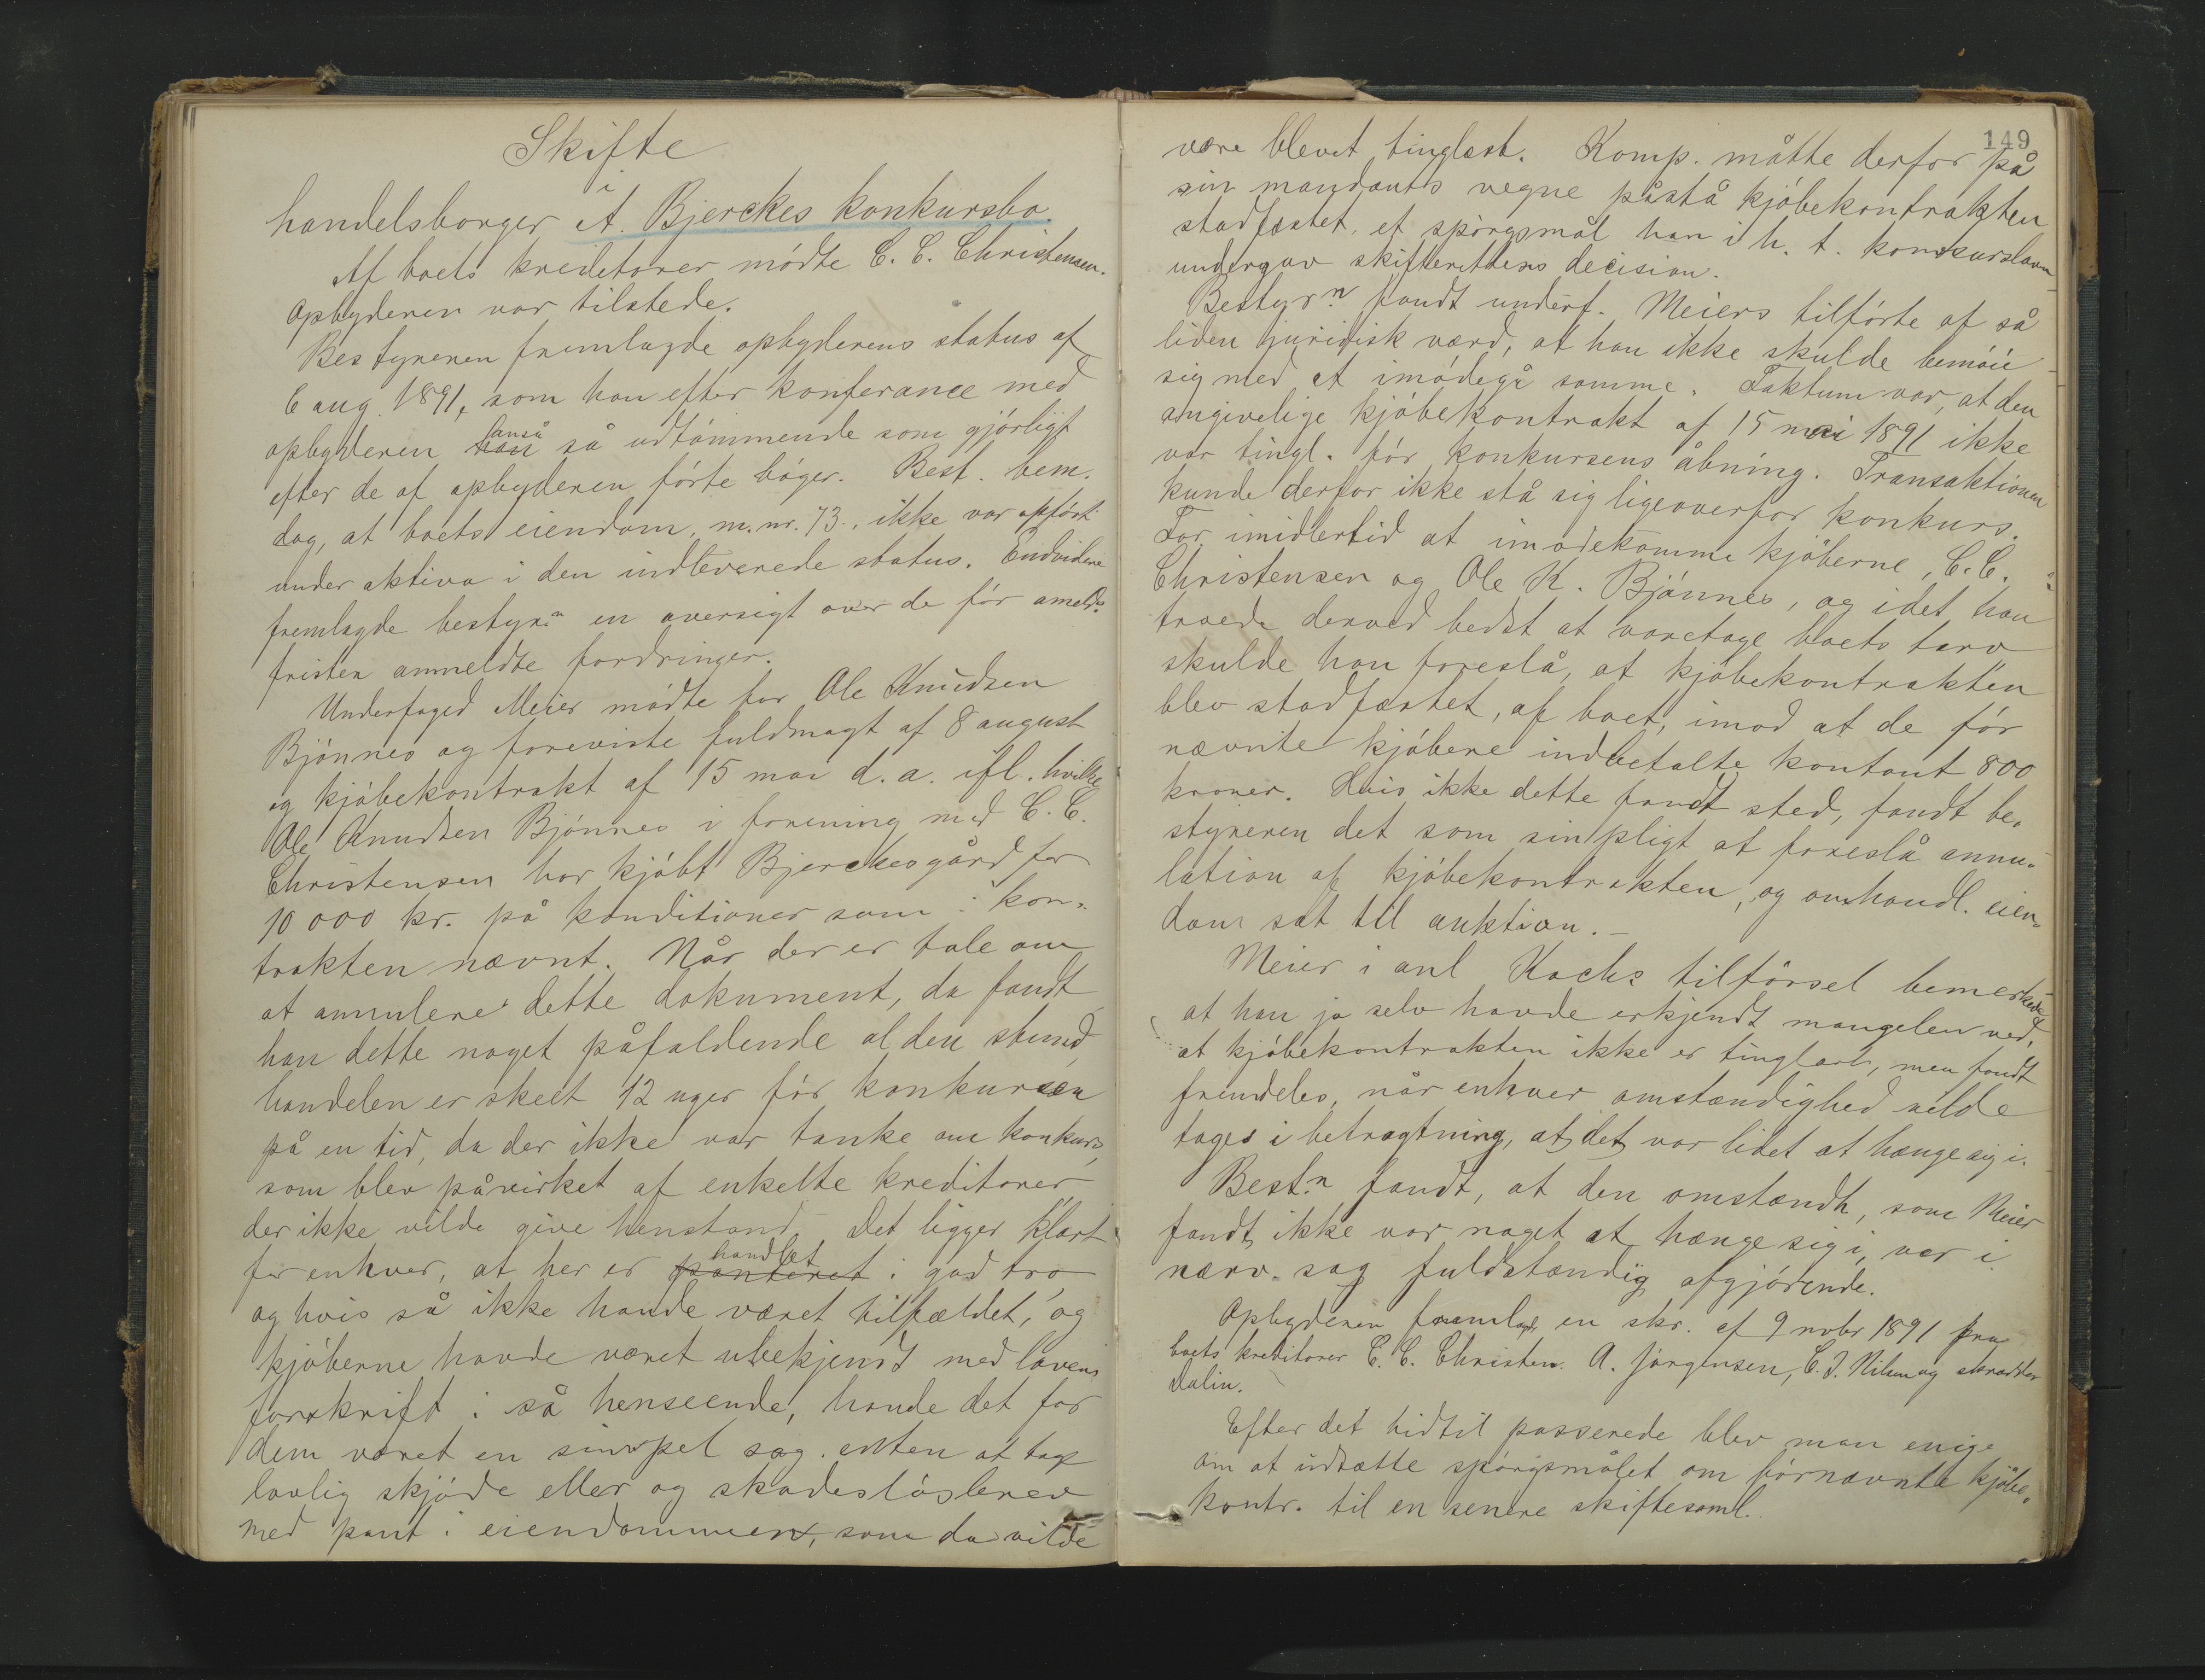 Skifte
i
handelsborger A. Bjerckes konkursbo.
Af boets kreditorer mødte C. C. Christensen.
Opbyderen var tilstede.
Bestyreren fremlagde opbyderens status af
6 aug. 1891, som han efter konferance med
opbyderen anså så udtømmende som gjørligt
efter de af opbyderen førte bøger. Best. bem.
dog, at boets eiendom, m.nr. 73, ikke var opført
under aktiva i den indleverede status. Endvidere
fremlagde bestyrn en oversigt over de før anmelds
fristen anmeldte fordringer.
Underfoged Meier mødte for Ole Knudsen
Bjønnes og foreviste fuldmagt af 8 august
og kjøbekontrakt af 15 mai d.a. ifl. hvilke
Ole Knudsen Bjønnes i forening med C. C.
Christensen har kjøbt Bjerckesgård for
10 000 kr. på konditioner som i kon-
trakten nævnt. Når der er tale om
at annulere dette dokument, da fandt
han dette noget påfaldende al den stund,
handelen er skeet 12 uger før konkursen
på en tid, da der ikke var tanke om konkurs,
som blev påvirket af enkelte kreditorer
der ikke vilde give henstand. Det ligger klart
for enhver, at her er panteret handlet i god tro
og hvis så ikke havde været tilfældet, og
kjøberne havde været ubekjendt med lovens
forskrift i så henseende, havde det for
dem været en simpel sag enten at tage
lovlig skjøde eller og skadesløsbrev
med pant i eiendommen, som da vilde
149
være blevet tinglæst. Komp. måtte derfor på
sin mandants vegne påstå kjøbekontrakten
stadfæstet, et spørgsmål han i h. t. konkursloven
undergav skifterettens decision.
Bestyrn fandt underf. Meiers tilførte af så
liden juridisk værd, at han ikke skulde bemøie
sig med at imødegå samme. Faktum var, at den
angivelige kjøbekontrakt af 15 mai 1891 ikke
var tingl. før konkursens åbning. Transaktionen
kunde derfor ikke stå sig ligeoverfor konkurs.
For imidlertid at imødekomme kjøberne, C. C.
Christensen og Ole K. Bjønnes, og idet han
troede derved bedst at varetage boets tarv
skulde han foreslå, at kjøbekontrakten
blev stadfæstet, af boet, imod at de før
nævnte kjøbere indbetalte kontant 800
kroner. Hvis ikke dette fandt sted, fandt be-
styreren det som sin pligt at foreslå annu-
lation af kjøbekontrakten, og omhandl. eien-
dom sat til auktion. –
Meier i anl Kochs tilførsel bemerkede,
at han jo selv havde erkjendt mangelen ved,
at kjøbekontrakten ikke er tinglæst, men fandt
fremdeles, når enhver omstændighed vilde
tages i betragtning, at det var lidet at hænge sig i.
Bestn fandt, at den omstændh, som Meier
fandt ikke var noget at hænge sig i, var i
nærv. sag fuldstændig afgjørende.
Opbyderen fremlagde en skr. af 9 novbr 1891 fra
boets kreditorer C. C. Christen. A. Jørgensen, C. J. Nilsen og skrædder
Dalin.
Efter det hidtil passerede blev man enige
om at udsætte spørgsmålet om førnævnte kjøbe-
kontr. til en senere skiftesaml.